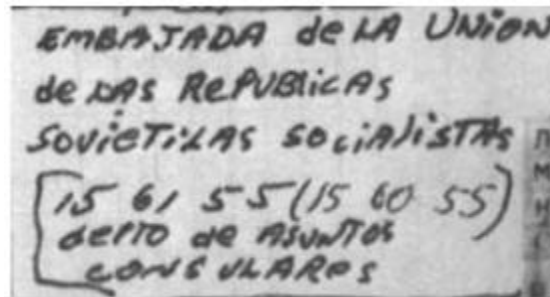 EMBAJADA de LA UNION
de LAS RePUBLicAS
SOVIETICAS SOciAListAS
15 61 55 (15 60 55)
DEPTO de ASUNTOS
CONSULARES